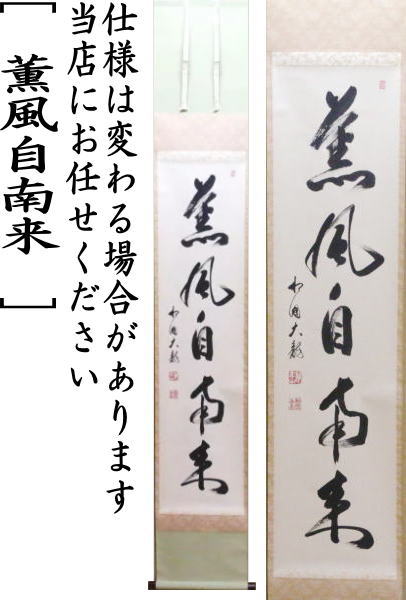 仕様は変わる場合があります
当店にお任せください
[薫風自南来]
薫風自南来
薫風自南来